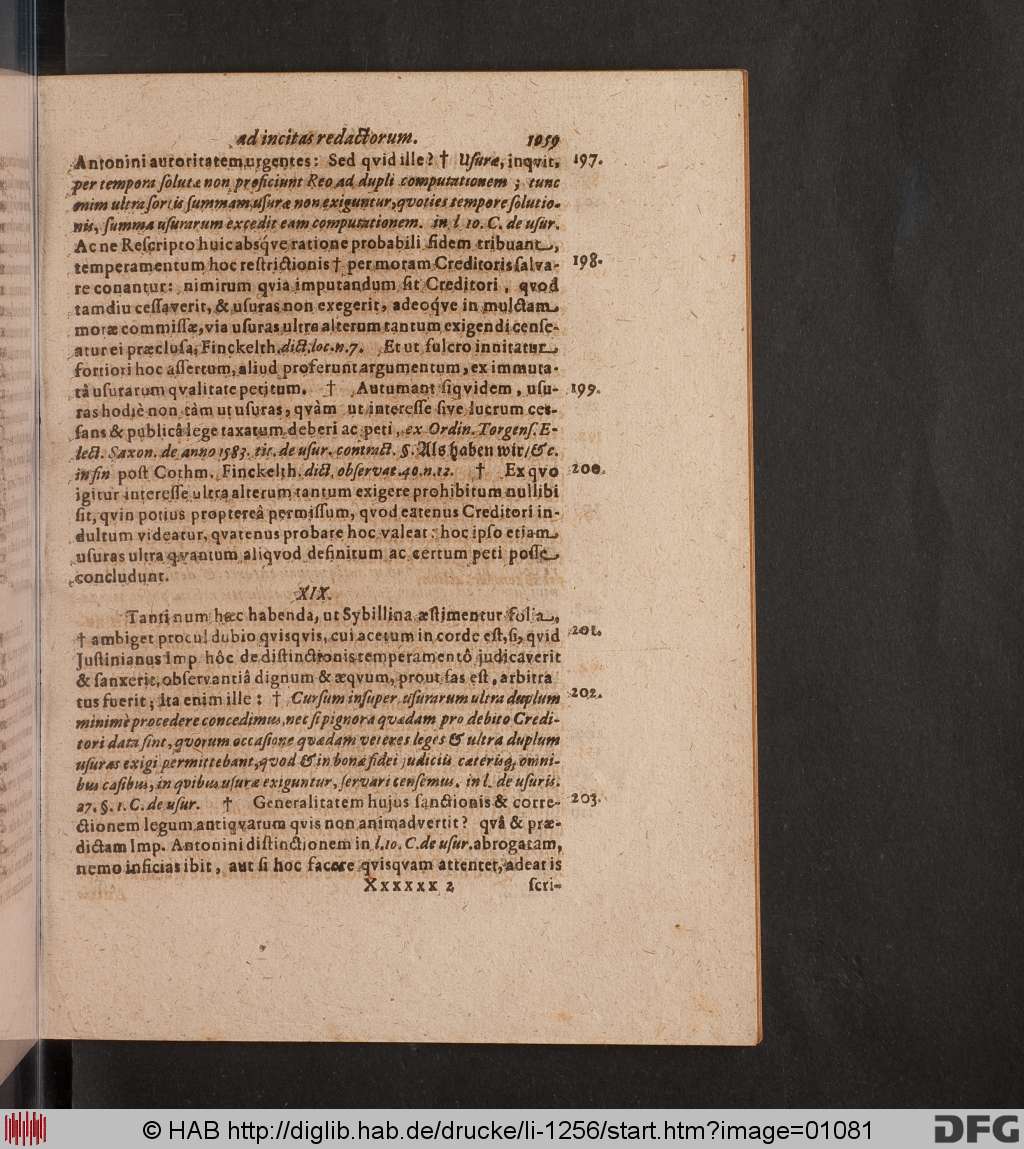 ad incitas redactorum. 1059
Antonini autoritatem urgentes: Sed qvid ille? † Usuræ, inqvit, 197.
per tempora solutæ non proficiunt Reo ad dupli computationem; tunc
enim ultra sortis summam usuræ non exiguntur, qvoties tempore solutio-
nis, summa usurarum excedit eam computationem. in l. 10. C. de usur.
Ac ne Rescripto huic absq́ve ratione probabili fidem tribuant,
temperamentum hoc restrictionis † per moram Creditoris salva- 198.
re conantur: nimirum qvia imputandum sit Creditori, qvod
tamdiu cessaverit, & usuras non exegerit, adeoq́ve in mulctam
moræ commissæ, via usuras ultra alterum tantum exigendi cense-
atur ei præclusa, Finckelth. dict. loc. n. 7. Et ut fulcro innitatur
fortiori hoc assertum, aliud proferunt argumentum, ex immuta-
tâ usurarum qvalitate petitum. † Autumant siqvidem, usu- 199.
ras hodiè non tàm ut usuras, qvàm ut interesse sive lucrum ces-
sans & publicâ lege taxatum deberi ac peti, ex Ordin. Torgens. E-
lect. Saxon. de anno 1583. tit. de usur. contract. §. Als haben wir/ &c.
in fin post Cothm. Finckelth. dict. observat. 40. n. 12. † Ex qvo 200.
igitur interesse ultra alterum tantum exigere prohibitum nullibi
sit, qvin potius proptereà permissum, qvod eatenus Creditori in-
dultum videatur, qvatenus probare hoc valeat: hoc ipso etiam
usuras ultra qvantum aliqvod definitum ac certum peti posse
concludunt.
XIX.
Tanti num hæc habenda, ut Sybillina æstimentur folia,
† ambiget procul dubio qvisqvis, cui acetum in corde est, si, qvid 201.
Justinianus Imp hôc de distinctionis temperamentô judicaverit
& sanxerit, observantiâ dignum & æqvum, prout fas est, arbitra
tus fuerit; ita enim ille: † Cursum insuper usurarum ultra duplum 202.
minimè procedere concedimus, nec si pignora quædam pro debito Credi-
tori data sint, qvorum occasione quædam veteres leges & ultra duplum
usuras exigi permittebant, qvod & in bonæ fidei judiciis cæterisq; omni-
bus casibus, in qvibus usuræ exiguntur, servari censemus. in l. de usuris.
27. §. 1. C. de usur. † Generalitatem hujus sanctionis & corre- 203.
ctionem legum antiqvarum qvis non animadvertit? qvâ & præ-
dictam Imp. Antonini distinctionem in l. 10. C. de usur. abrogatam,
nemo inficias ibit, aut si hoc facere qvisqvam attentet, adeat is
Xxxxxx 2 scri-
© HAB http://diglib.hab.de/drucke/li-1256/start.htm?image=01081
DFG